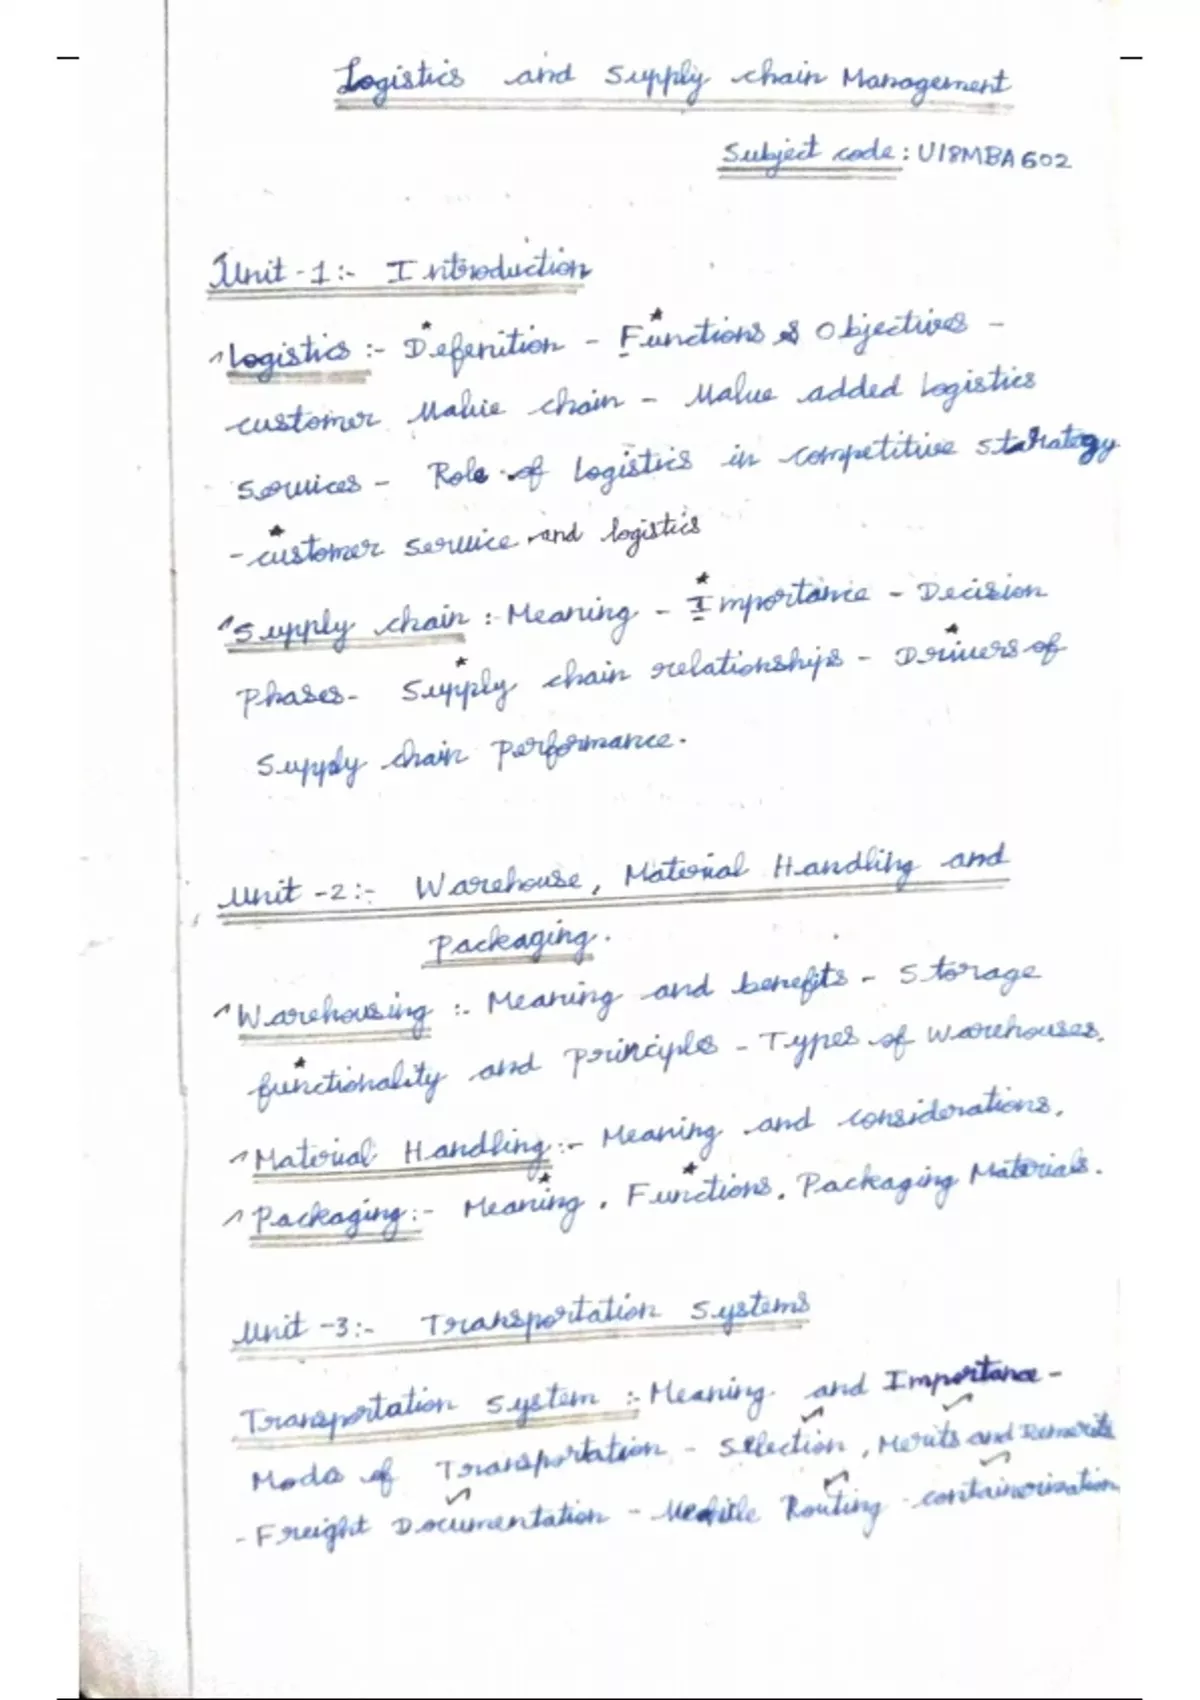 Logistics and Supply chain Management
Subject code : U18MBA602
Unit -1 :- Introduction
Logistics :- Defenition - Functions & Objectives -
customer Value chain - Value added Logistics
Services - Role of Logistics in competitive starategy
- customer service and logistics
Supply chain :- Meaning - Importance - Decision
Phases - Supply chain relationships - Drivers of
Supply chain Performance.
Unit -2 :- Warehouse, Material Handling and
Packaging.
Warehousing :- Meaning and benefits - Storage
functionality and Principles - Types of Warehouses.
Material Handling :- Meaning and considerations.
Packaging :- Meaning, Functions, Packaging Materials.
Unit -3 :- Transportation Systems
Transportation System :- Meaning and Importance -
Mode of Transportation - Selection, Merits and Demerits
- Freight Documentation - Vehicle Routing - containerization